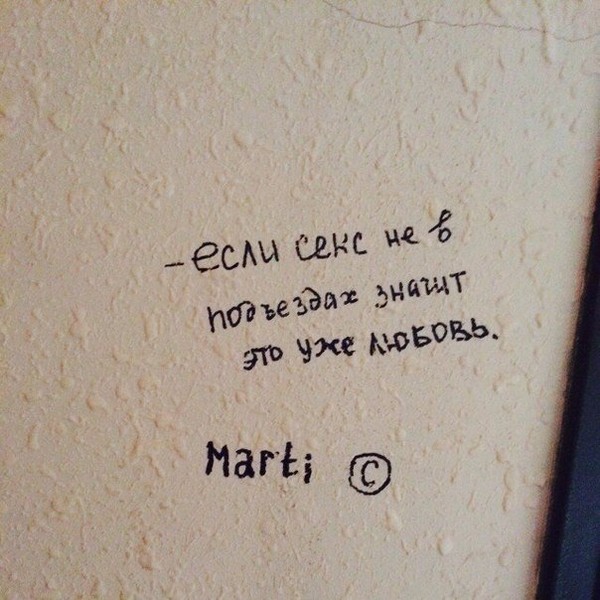 - если секс не в
подъездах значит
это уже любовь.
Marti ©